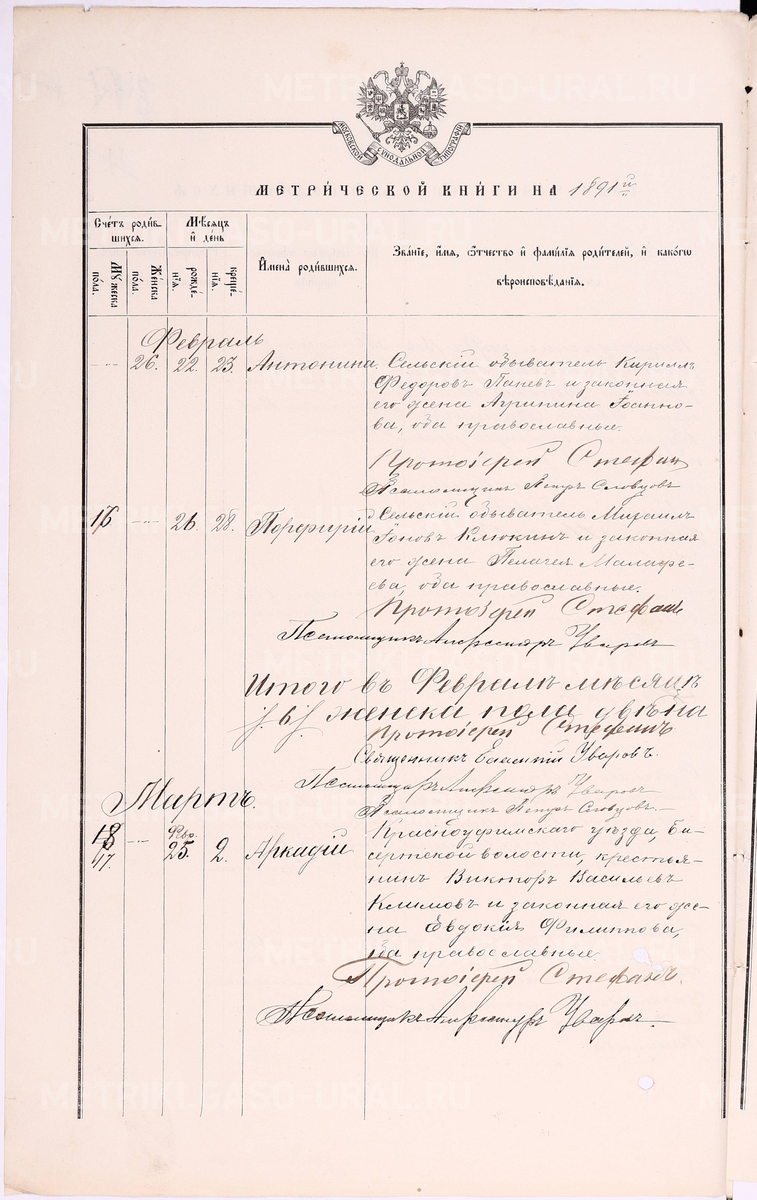 МОСКОВСКОЙ СѴНОДАЛЬНОЙ ТИПОГРАФІИ
МЕТРИ́ЧЕСКОЙ КНИ́ГИ НА 1891й
Сче́тъ роди́вшихсѧ.
Мѣ́сѧцъ и҆ де́нь
И҆мена̀ роди́вшихсѧ.
Зва́нїе, и҆́мѧ, ѻ҆́тчество и҆ фами́лїѧ роди́телей, и҆ како́гѡ
вѣроисповѣ́данїѧ.
Мꙋ́жеска по́ла.
Же́нска по́ла.
рожде́нїѧ.
креще́нїѧ.
Февраль
26. 22. 23. Антонина. Сельскій обыватель Кириллъ
Федоровъ Паневъ и законная
его жена Агрипина Іоанно-
ва, оба православные.
Протоіерей Стефан
Псаломщикъ Петръ Словцовъ
16 26. 28. Порфирій Сельскій обыватель Михаилъ
Іоновъ Клюкинъ и законная
его жена Пелагея Малафе-
ева, оба православные.
Протоіерей Стефан
Псаломщикъ Александръ Уваровъ
Итого въ Февралѣ мѣсяцѣ
женска пола двѣна
Протоіерей Стефанъ
Священникъ Евлампій Уваровъ.
Псаломщикъ Александръ Уваровъ
Мартъ.
Псаломщикъ Петръ Словцовъ.
18 17. Фев. 25. 2. Аркадій Красноуфимскаго уѣзда, Би-
сертской волости, крестья-
нинъ Викторъ Васильевъ
Климовъ и законная его же-
на Евдокія Филиппова,
оба православные.
Протоіерей Стефанъ.
Псаломщикъ Александръ Уваровъ.
METRIKI.GASO-URAL.RU